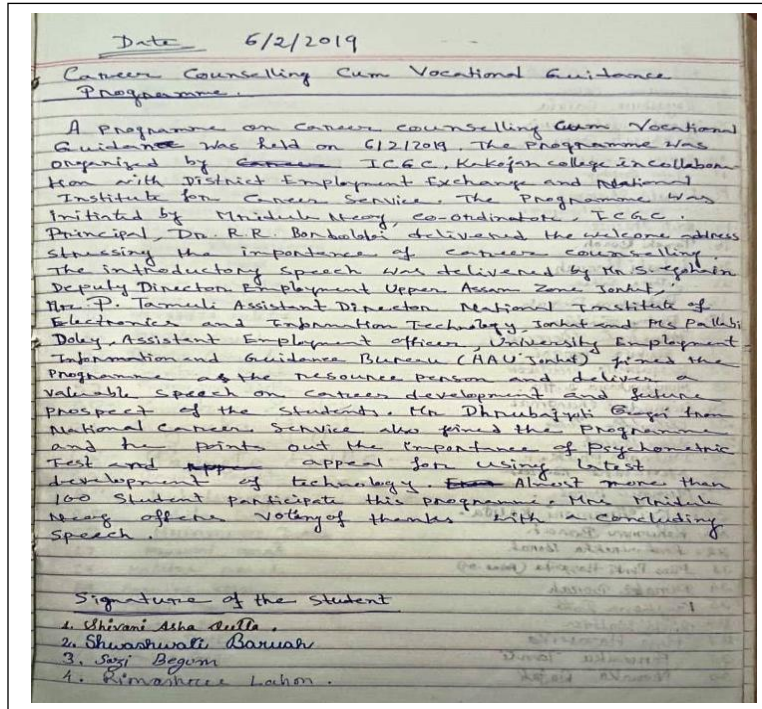 Date 6/2/2019
Career Counselling Cum Vocational Guidance
Programme.
A Programme on career counselling cum Vocational
Guidance was held on 6/2/2019. The Programme was
organized by ICGC, Kakojan college in collabora-
tion with District Employment Exchange and National
Institute for Career Service. The Programme was
initiated by Mridula Neog, co-ordinator, ICGC.
Principal, Dr. R.R. Borboloi delivered the welcome address
stressing the importance of career counselling.
The introductory speech was delivered by Mr S. Gohain
Deputy Director Employment Upper Assam Zone Jorhat,
Mr. P. Tamuli Assistant Director National Institute of
Electronics and Information Technology, Jorhat and Ms Pallabi
Doley, Assistant Employment officer, University Employment
Information and Guidance Bureau (AAU Jorhat) joined the
Programme as the resource person and deliver a
valuable speech on career development and future
prospect of the students. Mr Dhrubajyoti Gogoi from
National Career Service also joined the programme
and he points out the importance of Psychometric
Test and appeal for using latest
development of technology. Almost more than
100 Student participate this programme. Mridula
Neog offers of thanks with a concluding
speech.
Signature of the Student
1. Shivani Asha Dutta.
2. Shwashwati Baruah
3. Sazi Begum
4. Rimashree Lahon.